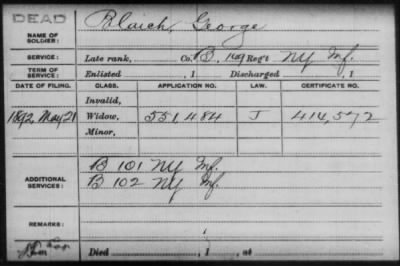 DEAD
Blaich, George
NAME OF SOLDIER:
SERVICE: Late rank, Co. B, 149 Reg't NY Inf.
TERM OF SERVICE: Enlisted , 1 Discharged , 1
DATE OF FILING. CLASS. APPLICATION NO. LAW. CERTIFICATE NO.
Invalid,
1892, May 21 Widow, 551,484 J 414,572
Minor,
ADDITIONAL SERVICES: B 101 NY Inf.
B 102 NY Inf.
REMARKS:
Died , 1 , at